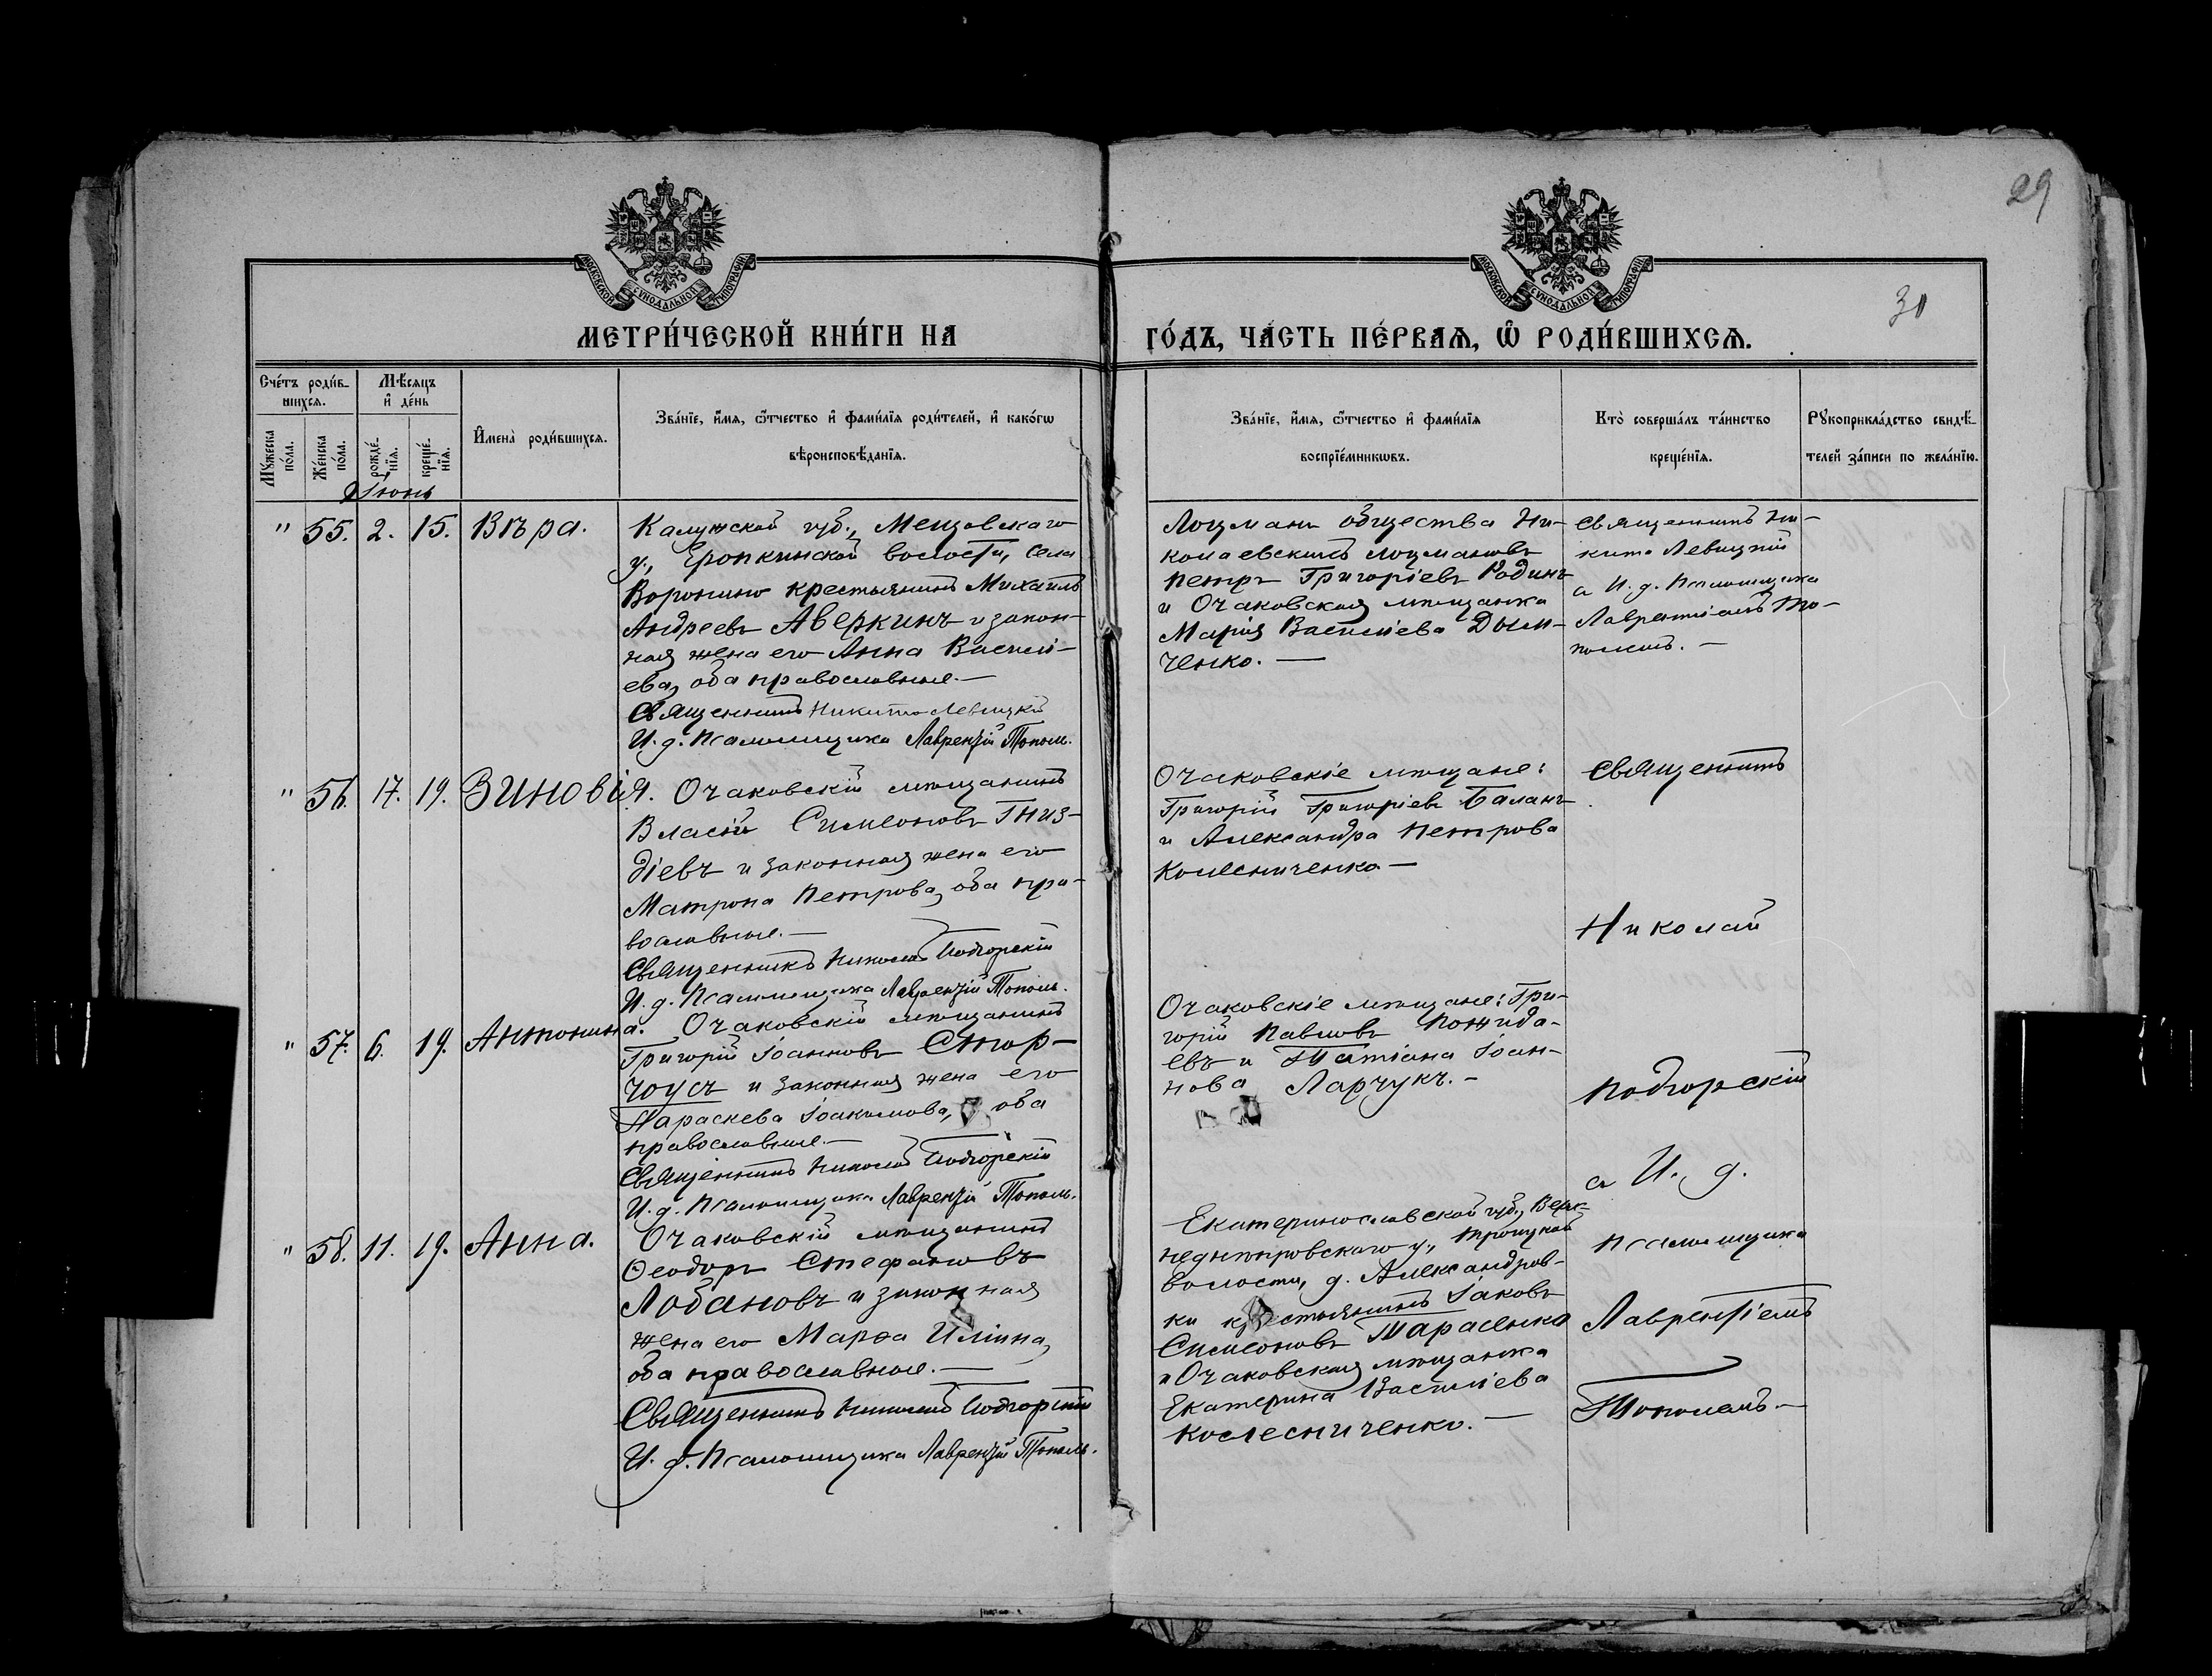 29
30
МОСКОВСКОЙ СѴНОДАЛЬНОЙ ТИПОГРАФІИ
МОСКОВСКОЙ СѴНОДАЛЬНОЙ ТИПОГРАФІИ
МЕТРИ́ЧЕСКОЙ КНИ́ГИ НА ГО́ДЪ, ЧА́СТЬ ПЕ́РВАѦ, Ѿ РОДИ́ВШИХСѦ.
Сче́тъ роди́в-
шихсѧ.
Мѣ́сѧцъ
и҆ де́нь
Мꙋ́жеска
по́ла.
Же́нска
по́ла.
рожде́-
нїѧ.
креще́-
нїѧ.
И҆мена̀ роди́вшихсѧ.
Зва́нїе, и҆́мѧ, ѻ҆́тчество и҆ фами́лїѧ роди́телей, и҆ како́гѡ
вѣроисповѣ́данїѧ.
Зва́нїе, и҆́мѧ, ѻ҆́тчество и҆ фами́лїѧ
воспрїе́мникѡвъ.
Кто̀ соверша́лъ та́инство
креще́нїѧ.
Рꙋкоприкла́дство свидѣ́-
телей за́писи по жела́нїю.
Іюнь
" 55. 2. 15. Вѣра.
Калужской губ., Мещовскаго
у., Еропкинской волости, села
Воронино крестьянинъ Михаилъ
Андреевъ Аверкинъ и закон-
ная жена его Анна Василі-
ева, оба православные.—
Священникъ Никита Левицкій
И. д. Псаломщика Лаврентій Тополь.
Лоцманъ общества Ни-
колаевскихъ лоцмановъ
Петръ Григоріевъ Родинъ
и Очаковская мѣщанка
Марія Василіева Дым-
ченко.—
Священникъ Ни-
кита Левицкій
с И. д. Псаломщика
Лаврентіемъ То-
полемъ.—
" 56. 17. 19. Зиновія.
Очаковскій мѣщанинъ
Власій Симеоновъ Гниз-
діевъ и законная жена его
Матрона Петрова, оба пра-
вославные.—
Священникъ Николай Подгорскій
И. д. Псаломщика Лаврентій Тополь.
Очаковскіе мѣщане:
Григорій Григоріевъ Баланъ
и Александра Петрова
Колесниченко.—
Священникъ
Николай
Подгорскій
с И. д.
Псаломщика
Лаврентіемъ
Тополемъ.—
" 57. 6. 19. Антонина.
Очаковскій мѣщанинъ
Григорій Іоанновъ Стор-
чоусъ и законная жена его
Параскева Іоакимова, оба
православные.—
Священникъ Николай Подгорскій
И. д. Псаломщика Лаврентій Тополь.
Очаковскіе мѣщане: Гри-
горій Павловъ Пожида-
евъ и Татіана Іоан-
нова Ларчукъ.—
" 58. 11. 19. Анна.
Очаковскій мѣщанинъ
Ѳеодоръ Стефановъ
Лобановъ и законная
жена его Марѳа Иліина,
оба православные.—
Священникъ Николай Подгорскій
И. д. Псаломщика Лаврентій Тополь.
Екатеринославской губ., Верх-
неднѣпровскаго у., Троицкой
волости, д. Александров-
ки крестьянинъ Іаковъ
Симеоновъ Тарасенко
и Очаковская мѣщанка
Екатерина Василіева
Колесниченко.—